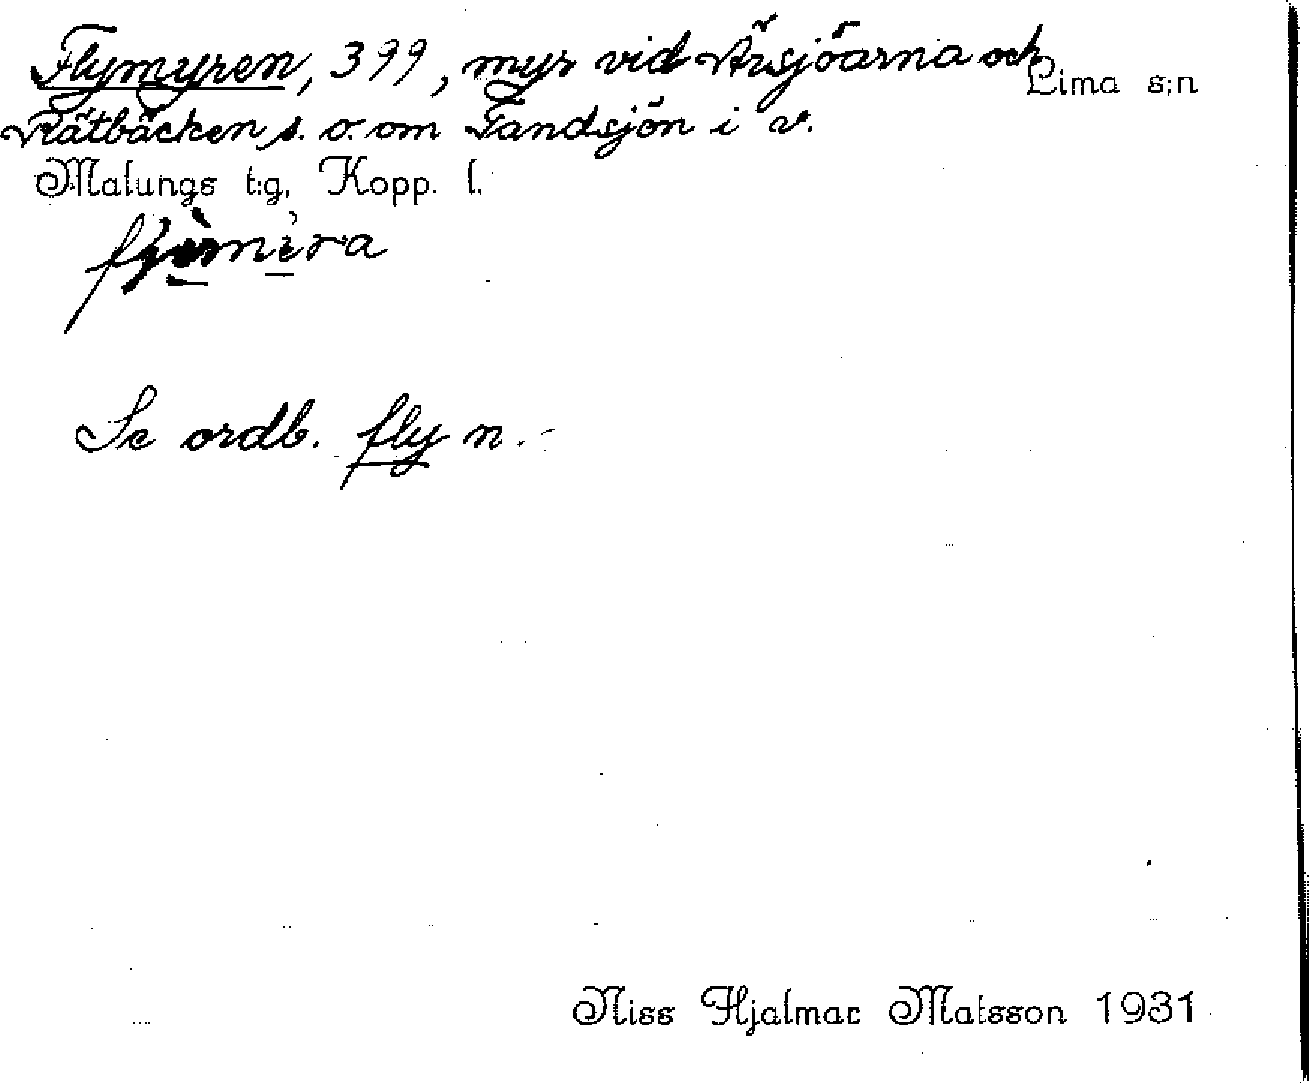 Flymyren, 399, myr vid Ärsjöarna och Lima s:n
Trätbäcken s. o. om Tandsjön i v.
Malungs t:g, Kopp. l.
Se ordb. fly n.
Niss Hjalmar Matsson 1931